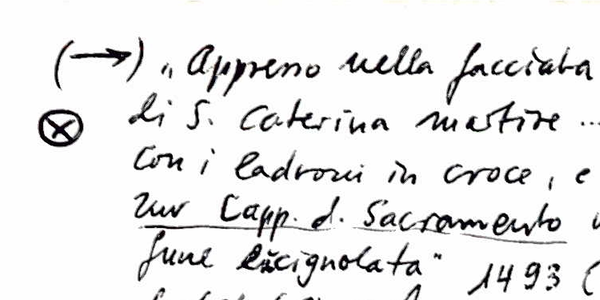 (→) „Appresso nella facciata
di S. Caterina martire ...
con i ladroni in croce, e
zur Capp. d. Sacramento
fune excignolata" 1493 (